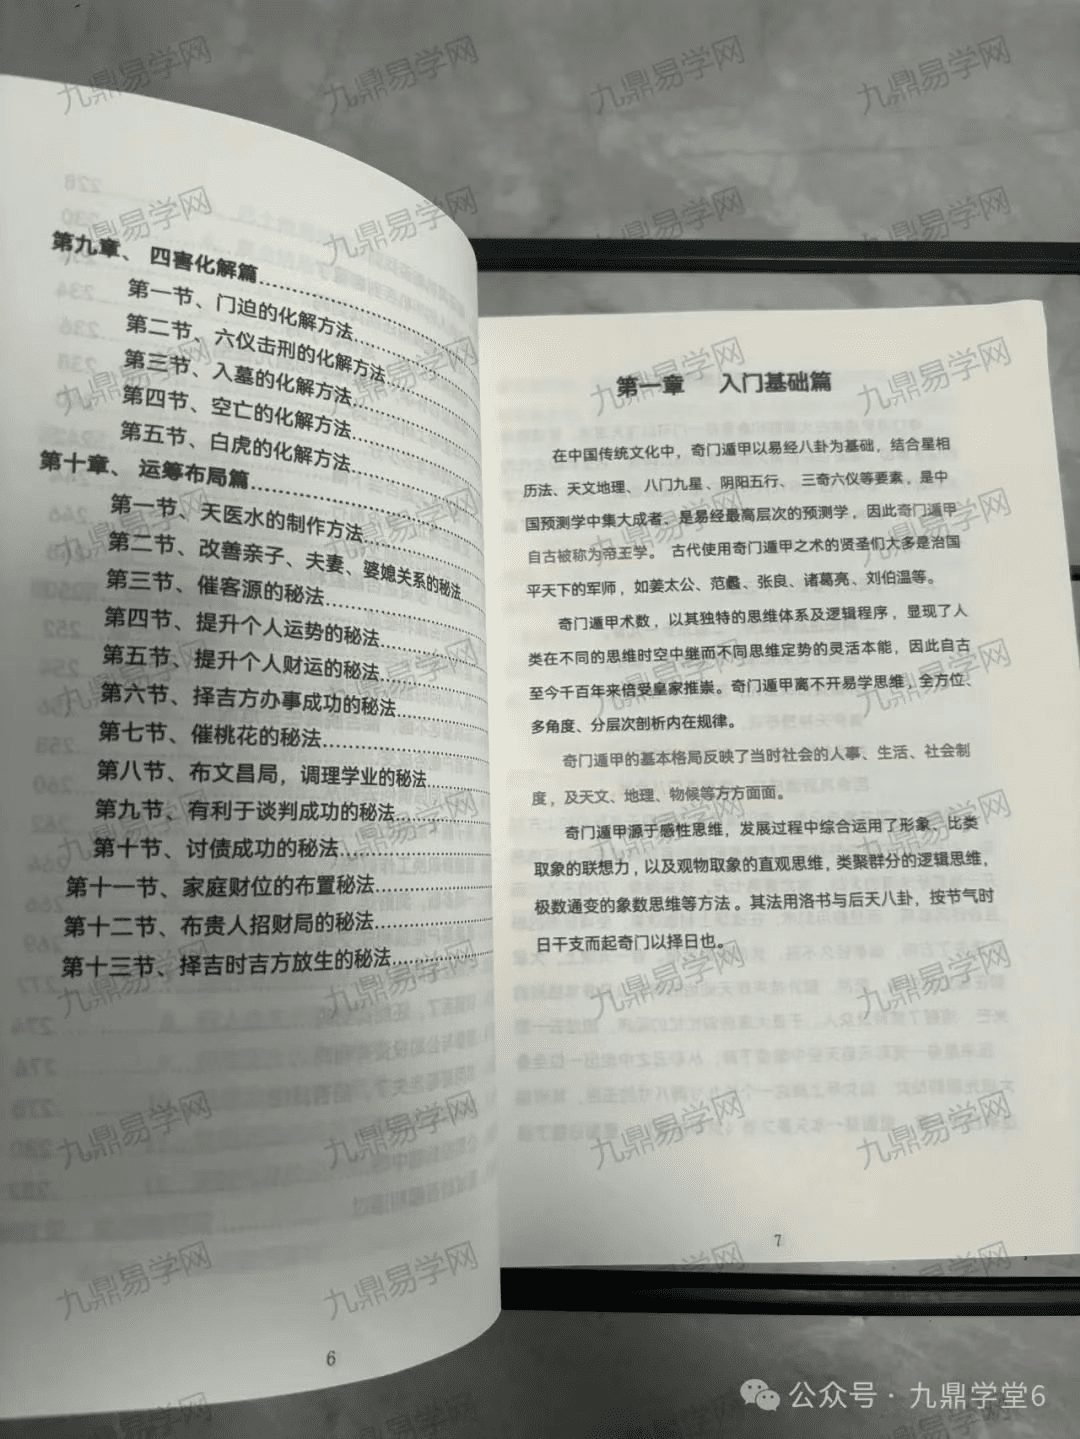 第九章、 四害化解篇
第一节、门迫的化解方法
第二节、六仪击刑的化解方法
第三节、入墓的化解方法
第四节、空亡的化解方法
第五节、白虎的化解方法
第十章、 运筹布局篇
第一节、天医水的制作方法
第二节、改善亲子、夫妻、婆媳关系的秘法
第三节、催客源的秘法
第四节、提升个人运势的秘法
第五节、提升个人财运的秘法
第六节、择吉方办事成功的秘法
第七节、催桃花的秘法
第八节、布文昌局，调理学业的秘法
第九节、有利于谈判成功的秘法
第十节、讨债成功的秘法
第十一节、家庭财位的布置秘法
第十二节、布贵人招财局的秘法
第十三节、择吉时吉方放生的秘法
6
第一章 入门基础篇
在中国传统文化中，奇门遁甲以易经八卦为基础，结合星相
历法、天文地理、八门九星、阴阳五行、三奇六仪等要素，是中
国预测学中集大成者、是易经最高层次的预测学，因此奇门遁甲
自古被称为帝王学。古代使用奇门遁甲之术的贤圣们大多是治国
平天下的军师，如姜太公、范蠡、张良、诸葛亮、刘伯温等。
奇门遁甲术数，以其独特的思维体系及逻辑程序，显现了人
类在不同的思维时空中继而不同思维定势的灵活本能，因此自古
至今千百年来倍受皇家推崇。奇门遁甲离不开易学思维，全方位、
多角度、分层次剖析内在规律。
奇门遁甲的基本格局反映了当时社会的人事、生活、社会制
度，及天文、地理、物候等方方面面。
奇门遁甲源于感性思维，发展过程中综合运用了形象、比类
取象的联想力，以及观物取象的直观思维，类聚群分的逻辑思维，
极数通变的象数思维等方法。其法用洛书与后天八卦，按节气时
日干支而起奇门以择日也。
7
九鼎易学网
公众号·九鼎学堂6